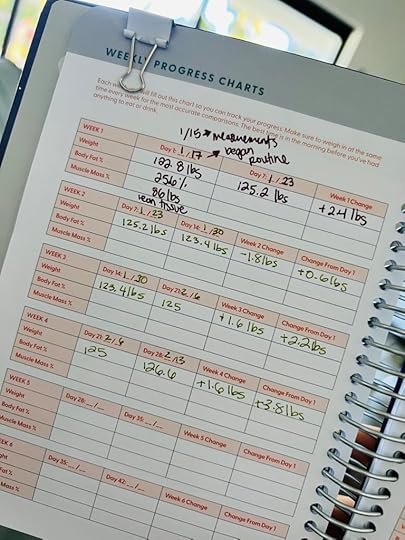 WEEKLY PROGRESS CHARTS
Each will fill out this chart so you can track your progress. Make sure to weigh in at the same
time every week for the most accurate comparisons. The best time is in the morning before you've had
anything to eat or drink.
1/15 → measurements
1/17 → began
routine
WEEK 1 Day 1: 1/17 Day 7: 1/23 Week 1 Change
Weight 122.8 lbs 125.2 lbs +2.4 lbs
Body Fat % 25.6%
Muscle Mass % 86 lbs
lean tissue
WEEK 2 Day 7: 1/23 Day 14: 1/30 Week 2 Change Change From Day 1
Weight 125.2 lbs 123.4 lbs -1.8 lbs +0.6 lbs
Body Fat %
Muscle Mass %
WEEK 3 Day 14: 1/30 Day 21: 2/6 Week 3 Change Change From Day 1
Weight 123.4 lbs 125 +1.6 lbs +2.2 lbs
Body Fat %
Muscle Mass %
WEEK 4 Day 21: 2/6 Day 28: 2/13 Week 4 Change Change From Day 1
Weight 125 126.6 +1.6 lbs +3.8 lbs
Body Fat %
Muscle Mass %
WEEK 5 Day 28: __/__ Day 35: __/__ Week 5 Change Change From Day 1
Weight
Body Fat %
Muscle Mass %
6 Day 35: __/__ Day 42: __/__ Week 6 Change Change From Day 1
Fat %
Mass %